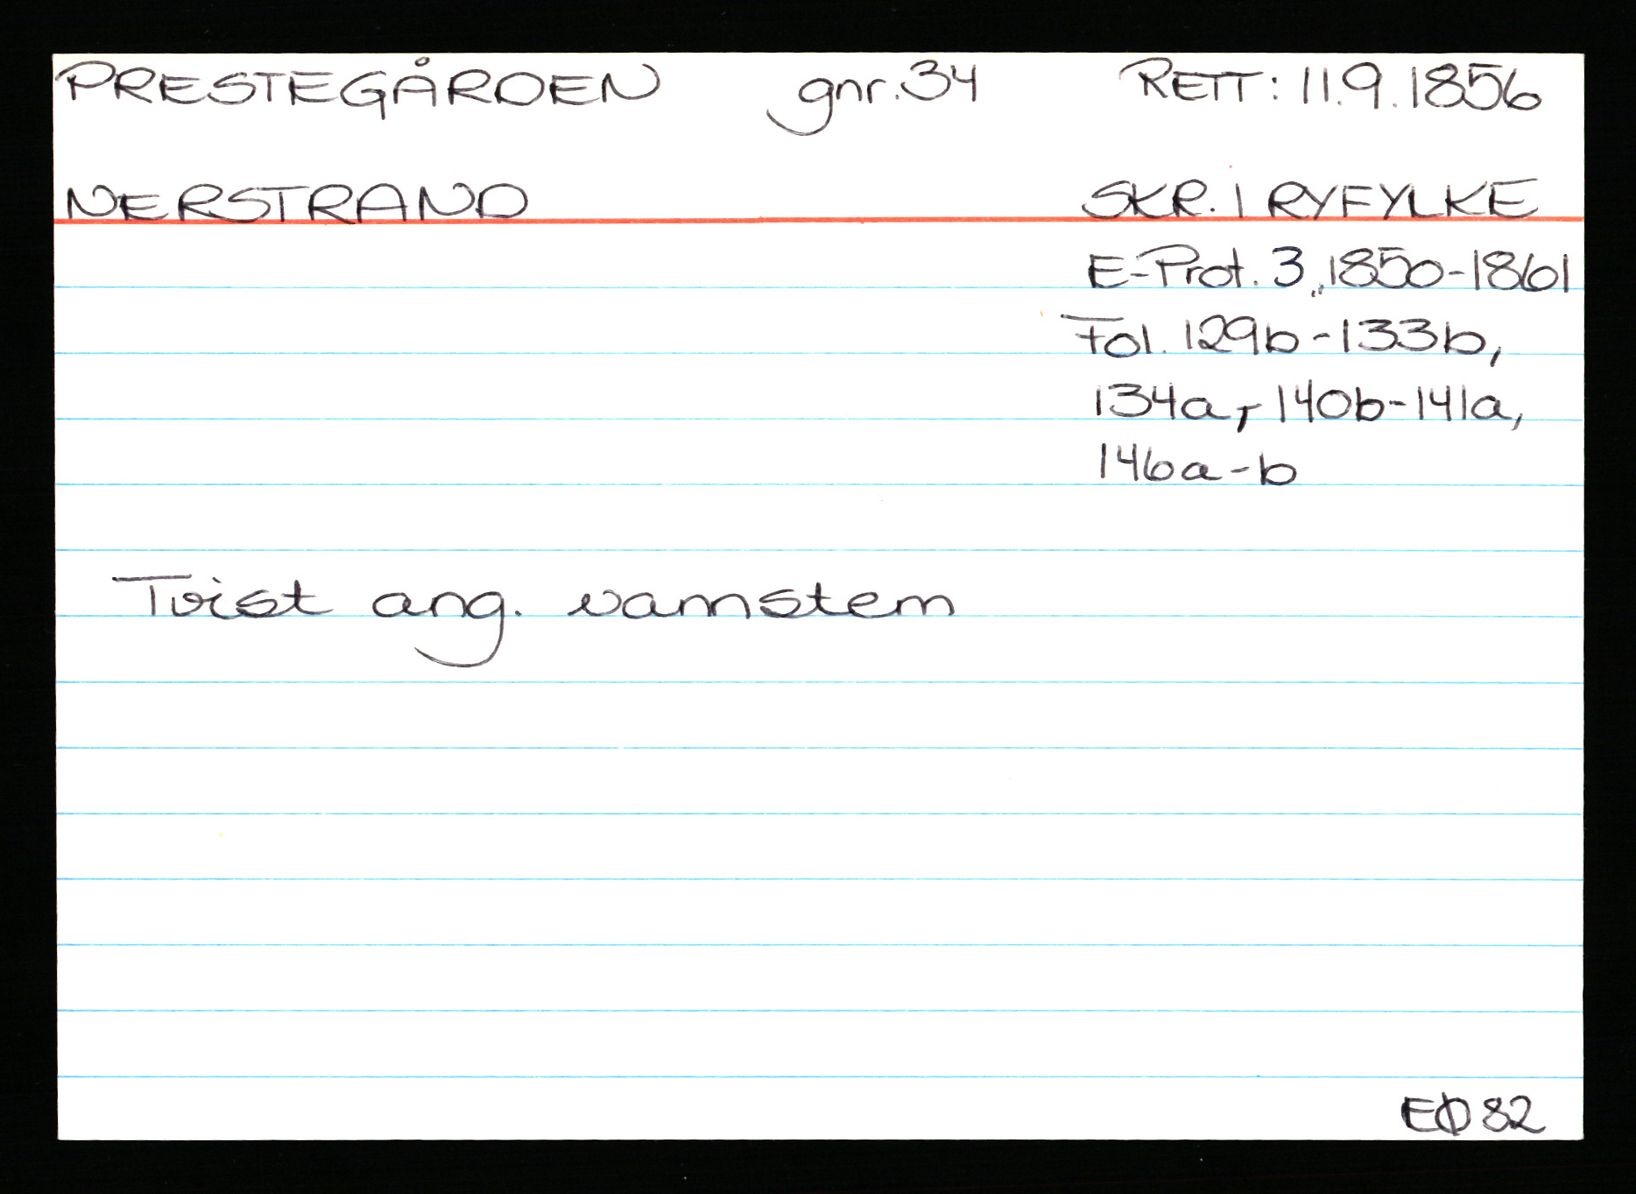 PRESTEGÅRDEN gnr.34 RETT: 11.9.1856
NERSTRAND SKR. I RYFYLKE
E-Prot. 3, 1850-1861
Fol. 129b-133b,
134a, 140b-141a,
146a-b
Tvist ang. vamstem
EØ 82